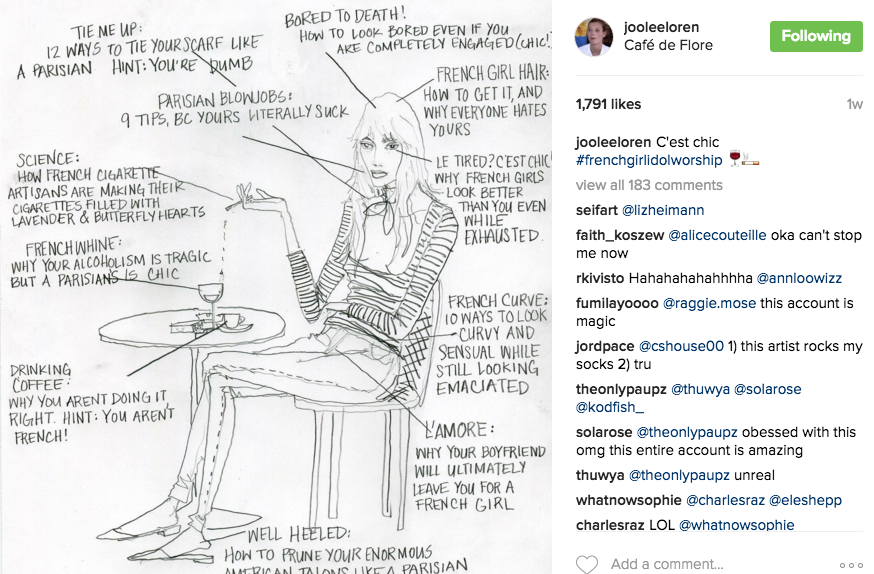 TIE ME UP:
12 WAYS TO TIE YOUR SCARF LIKE
A PARISIAN HINT: YOU'RE DUMB
BORED TO DEATH!
HOW TO LOOK BORED EVEN IF YOU
ARE COMPLETELY ENGAGED (CHIC!)
PARISIAN BLOWJOBS:
9 TIPS, BC YOURS LITERALLY SUCK
FRENCH GIRL HAIR:
HOW TO GET IT, AND
WHY EVERYONE HATES
YOURS
SCIENCE:
HOW FRENCH CIGARETTE
ARTISANS ARE MAKING THEIR
CIGARETTES FILLED WITH
LAVENDER & BUTTERFLY HEARTS
LE TIRED? C'EST CHIC!
WHY FRENCH GIRLS
LOOK BETTER
THAN YOU EVEN
WHILE
EXHAUSTED.
FRENCH WHINE:
WHY YOUR ALCOHOLISM IS TRAGIC
BUT A PARISIAN'S IS CHIC
FRENCH CURVE:
10 WAYS TO LOOK
CURVY AND
SENSUAL WHILE
STILL LOOKING
EMACIATED
DRINKING
COFFEE:
WHY YOU ARENT DOING IT
RIGHT. HINT: YOU AREN'T
FRENCH!
L'AMORE:
WHY YOUR BOYFRIEND
WILL ULTIMATELY
LEAVE YOU FOR A
FRENCH GIRL
WELL HEELED:
HOW TO PRUNE YOUR ENORMOUS
AMERICAN TALONS LIKE A PARISIAN
jooleeloren
Café de Flore
Following
1,791 likes
1w
jooleeloren C'est chic
#frenchgirlidolworship 🍷🚬
view all 183 comments
seifart @lizheimann
faith_koszew @alicecouteille oka can't stop
me now
rkivisto Hahahahahahhhha @annloowizz
fumilayoooo @raggie.mose this account is
magic
jordpace @cshouse00 1) this artist rocks my
socks 2) tru
theonlypaupz @thuwya @solarose
@kodfish_
solarose @theonlypaupz obessed with this
omg this entire account is amazing
thuwya @theonlypaupz unreal
whatnowsophie @charlesraz @eleshepp
charlesraz LOL @whatnowsophie
Add a comment...